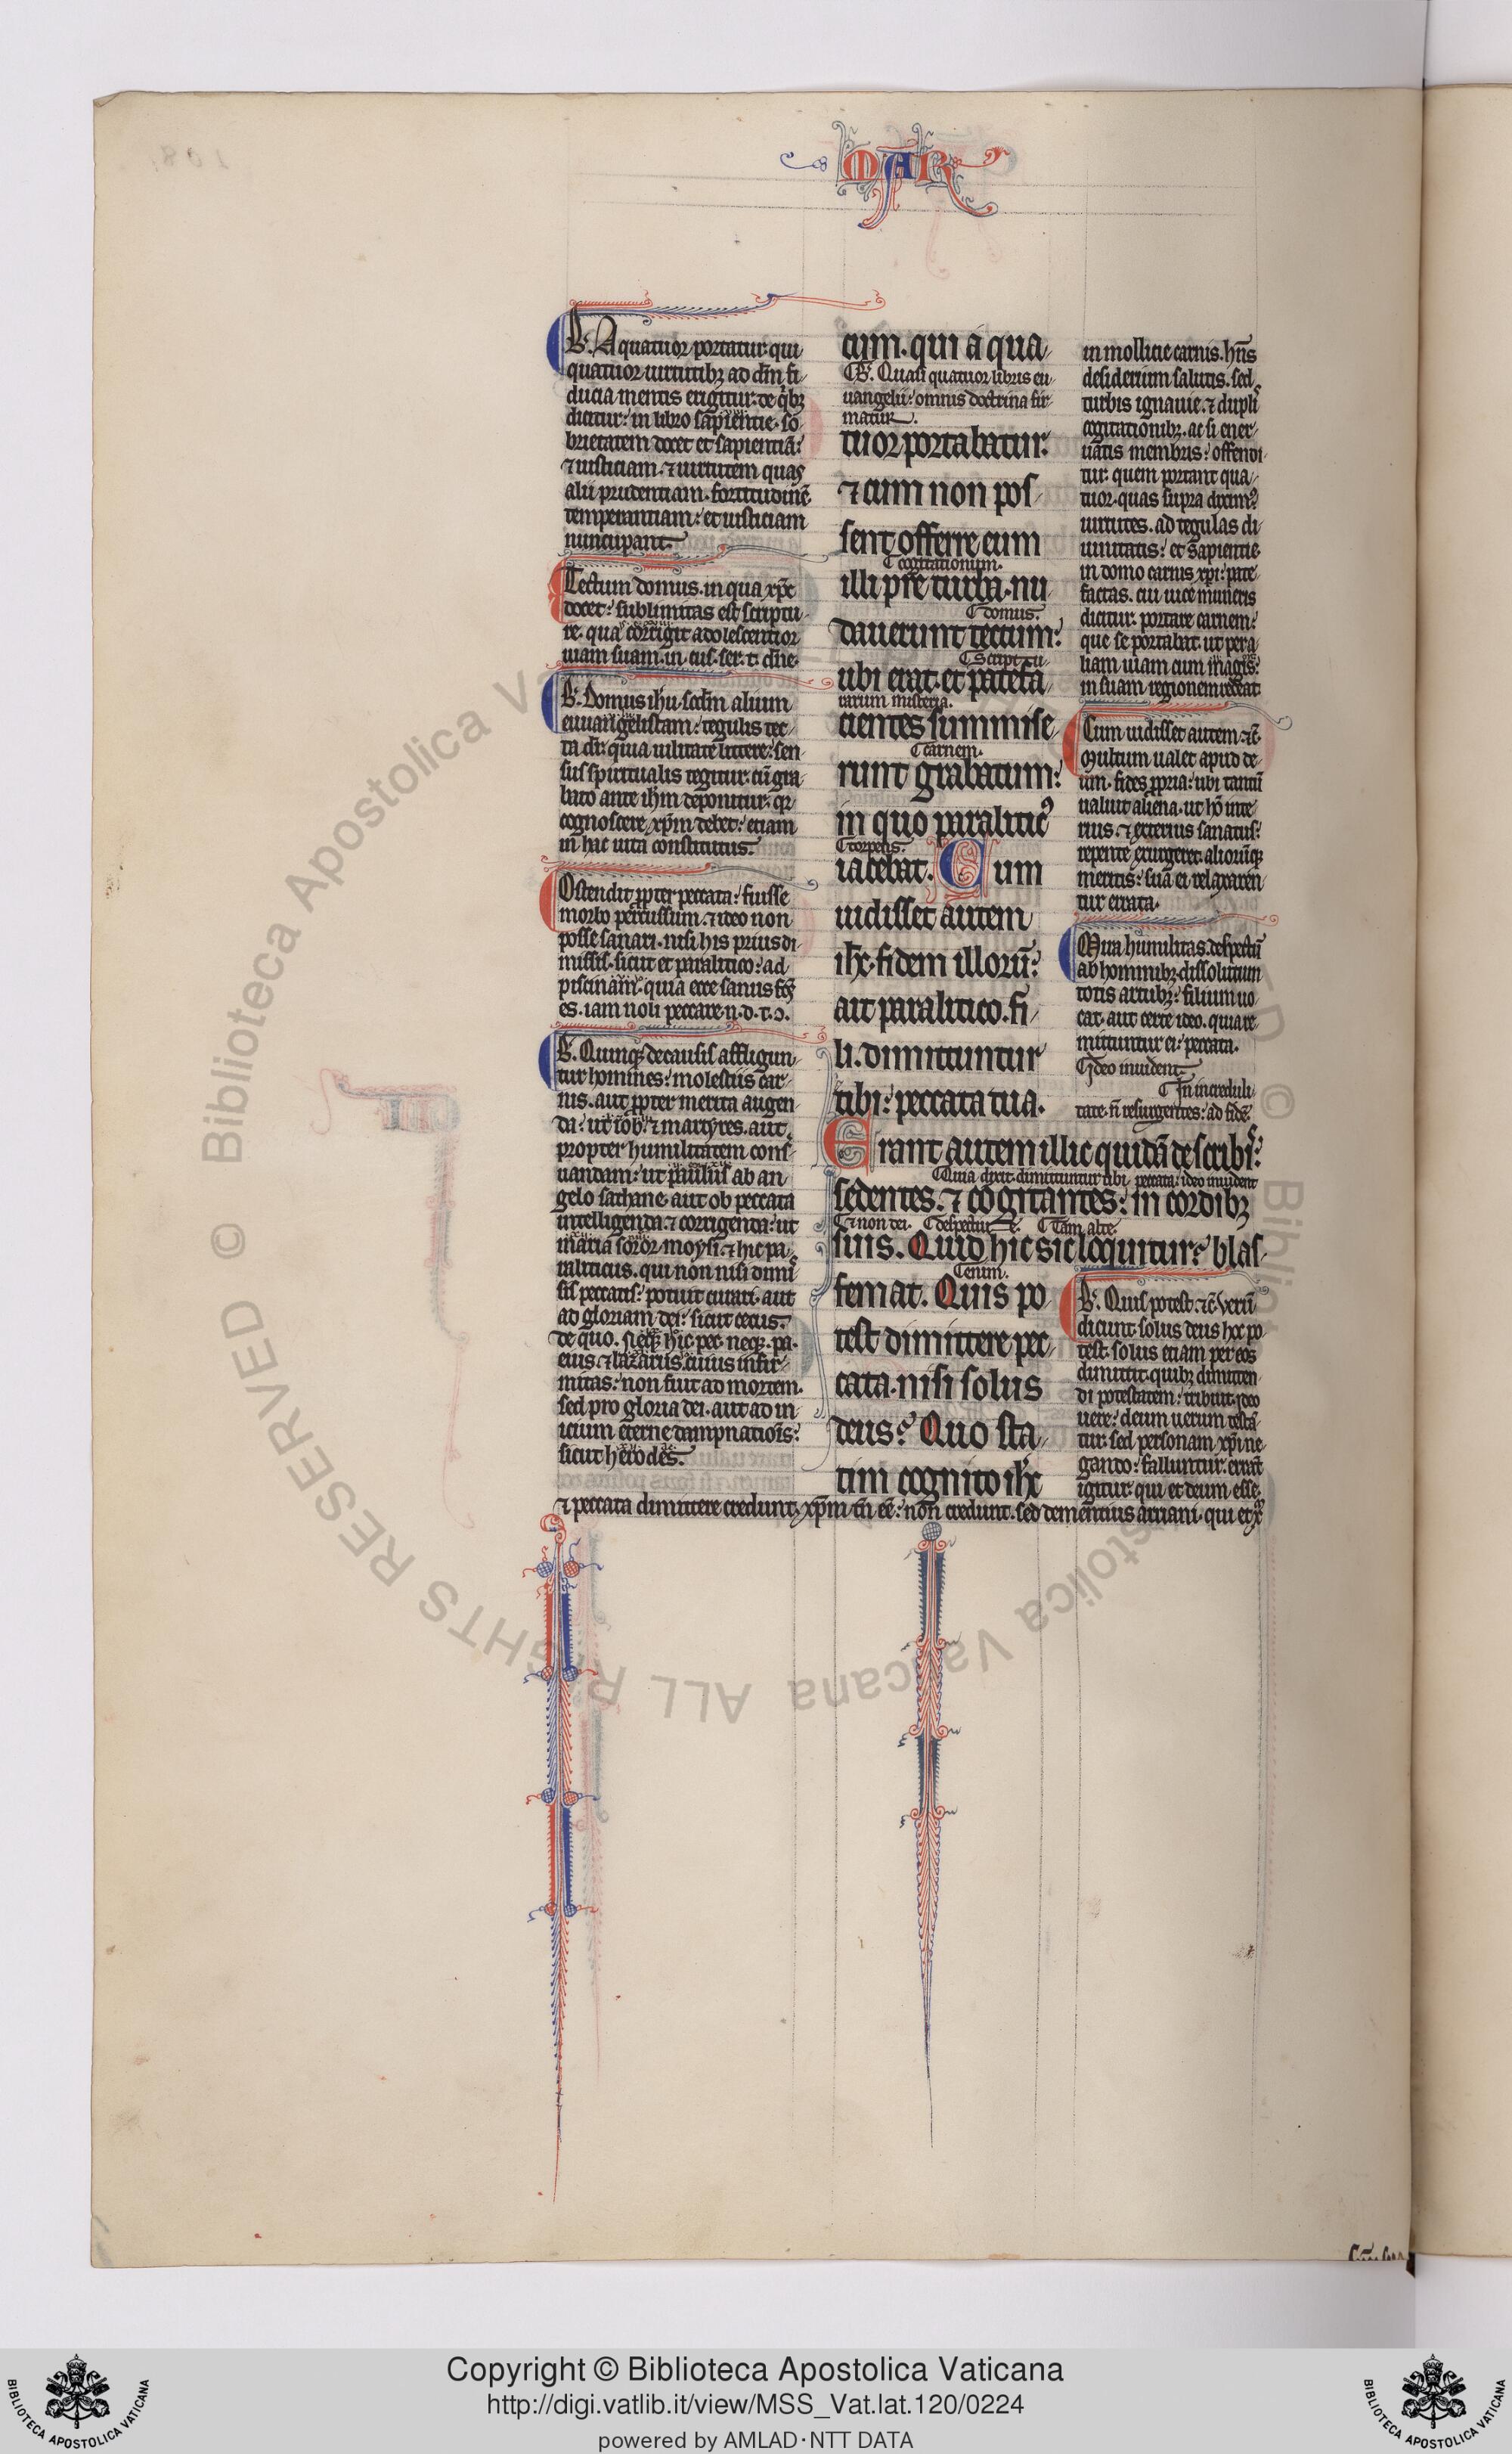 MAR
B. A quatuor portatur. qui
quatuor uirtutibꝫ ad dn̄m fi
ducia mentis erigitur. de qͥbꝫ
dicitur: in libro sapientie. so
brietatem docet et sapientiā:
⁊ iusticiam. ⁊ uirtutem quas
alii prudentiam. fortitudinē.
temperantiam: et iusticiam
nuncupant.
Tectum domus. in qua xp̄c
docet: sublimitas est scriptu
re. qua corrigit adolescentior
uiam suam. in cus. ser. t. dn̄e.
B. Domus ihu. scdm alium
euuangelistam: tegulis tec
ta dr̄. quia uilitate littere: sen
sus spiritualis tegitur. cū gra
bato ante ihm deponitur. qr
cognoscere xp̄m debet: etiam
in hac uita constitutus.
Ostendit ꝓpter peccata: fuisse
morbo percussum. ⁊ ideo non
posse sanari. nisi his prius di
missis. sicut et paralitico: ad
piscinam. quia ecce sanus fcs̄
es. iam noli peccare. n. d. t. ↄ.
B. Quinqꝫ de causis affligun
tur homines: molestiis car
nis. aut ꝓpter merita augen
da: ut iob. ⁊ martyres. aut
propter humilitatem cons̄
uandam: ut paulus ab an
gelo sathane. aut ob peccata
intelligenda. ⁊ corrigenda: ut
maria soror moysi. ⁊ hic pa
raliticus. qui non nisi dimi
sis peccatis: potuit curari. aut
ad gloriam dei: sicut cecus.
de quo. neqꝫ hic pec. neqꝫ. pa.
eius. ⁊ lazarus. cuius infir
mitas: non fuit ad mortem.
sed pro gloria dei. aut ad in
icium eterne dampnatiōis:
sicut herodes.
cum. qui a qua
B. Quasi quatuor libris eu
uangelii: omnis doctrina fir
matur.
tuor portabatur.
⁊ cum non pos
sent offerre eum
cogitationum.
illi pre turba. nu
domus.
dauerunt tectum:
scriptu
ubi erat. et patefa
rarum misteria.
cientes summise
carnem.
runt grabatum:
in quo paraliticꝰ
torpens.
iacebat. Cum
uidisset autem
ihc. fidem illorū:
ait paralitico. fi
li. dimittuntur
tibi: peccata tua.
Erant autem illic quidā de scribis:
Quia dixit. dimittuntur tibi peccata. ideo inuident
sedentes. ⁊ cogitantes: in cordibꝫ
⁊ non dei. despectiue. Tam alte.
suis. Quid hic sic loquitur? blas
enim.
femat. Quis po
test dimittere pec
cata. nisi solus
deus? Quo sta
tim cognito ihc
in mollicie carnis. hn̄s
desiderium salutis. sed
turbis ignauie. ⁊ dupli
cogitationibꝫ. ac si ener
uatis membris: offendi
tur. quem portant qua
tuor. quas supra diximꝰ
uirtutes. ad tegulas di
uinitatis: et sapientie
in domo carnis xp̄i: pate
factas. cui uice muneris
dicitur. portare carnem:
que se portabat. ut per a
liam uiam cum magis:
in suam regionem redeat
Cum uidisset autem. ⁊c̄.
Multum ualet apud de
um. fides ꝓpria: ubi tantū
ualuit aliena. ut hō inte
rius. ⁊ exterius sanatus:
repente exurgeret. aliorūqꝫ
meritis: sua ei relaxaren
tur errata.
Mira humilitas. despectū
ab hominibꝫ. dissolutum
totis artubꝫ: filium uo
cat. aut certe ideo. quia re
mittuntur ei: peccata.
Ideo inuident.
In increduli
tate. ñ resurgentes: ad fidē.
B. Quis potest. ⁊c̄. Verū
dicunt. solus deus hec po
test. solus etiam per eos
dimittit. quibꝫ dimitten
di potestatem: tribuit. ideo
uere: deum uerum testā
tur. sed personam xp̄i ne
gando: falluntur. errāt
igitur. qui et deum esse.
⁊ peccata dimittere credunt. xp̄m tn̄ eē: non credunt. sed dementius arriani. qui et
© Biblioteca Apostolica Vaticana ALL RIGHTS RESERVED
Copyright © Biblioteca Apostolica Vaticana
http://digi.vatlib.it/view/MSS_Vat.lat.120/0224
powered by AMLAD·NTT DATA
BIBLIOTECA APOSTOLICA VATICANA
BIBLIOTECA APOSTOLICA VATICANA